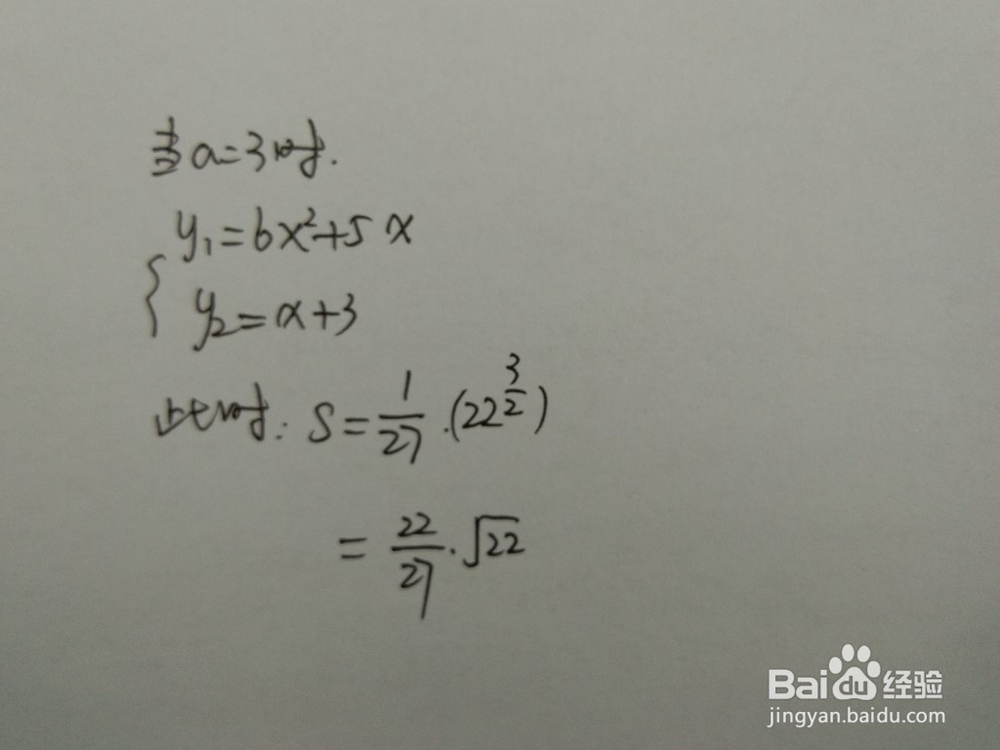 当a=3时.
{ y₁=6x²+5x
y₂=x+3
此时: S=1/27·(22^(3/2))
=22/27·√22
Bai du 经验
jingyan.baidu.com